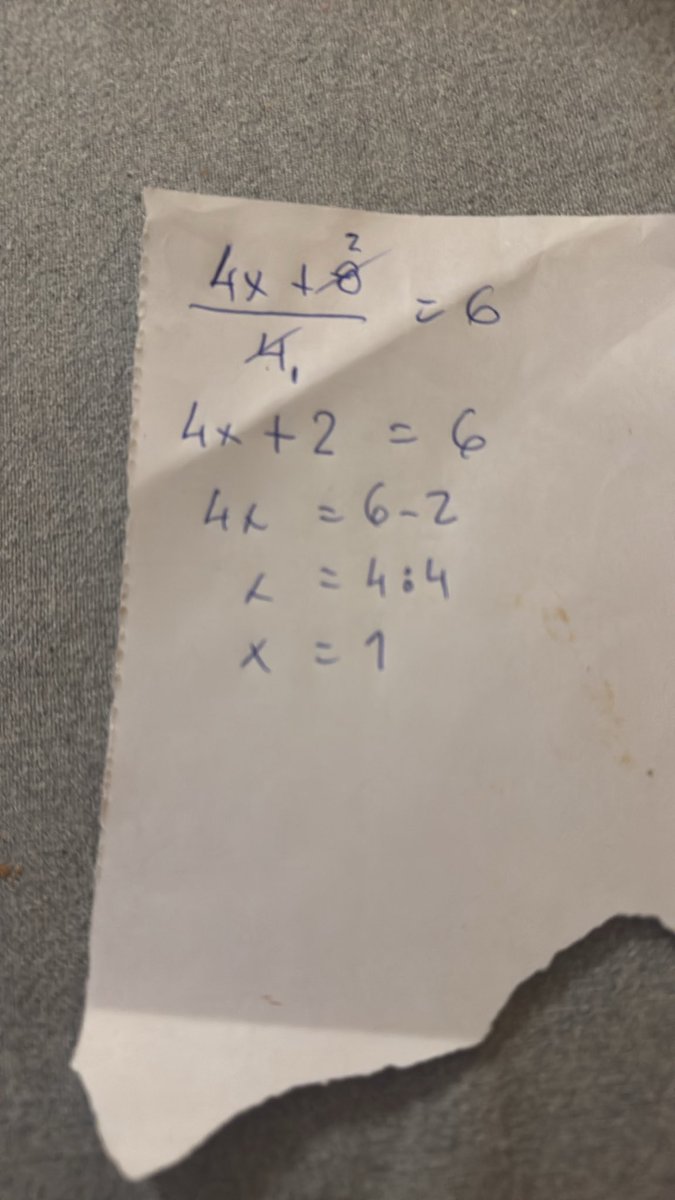 4x + 8 2
4 1 = 6
4x + 2 = 6
4x = 6 - 2
x = 4 : 4
x = 1